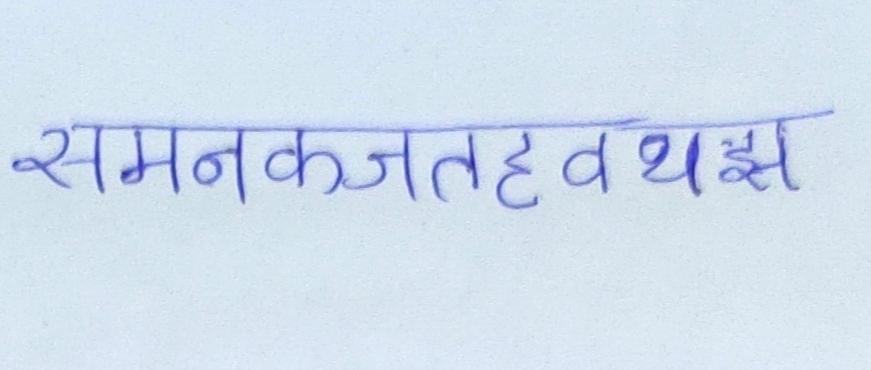 समनकजतहवथझ